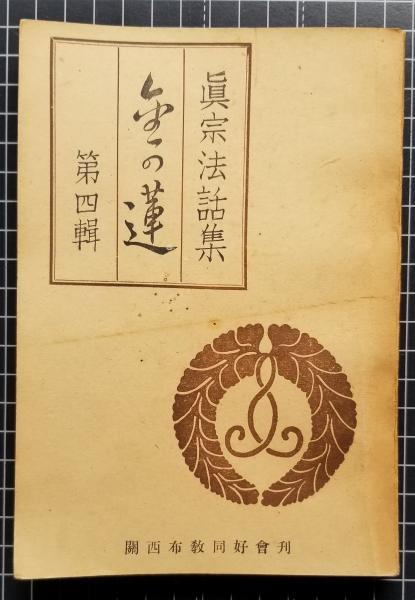 眞宗法話集
金の蓮
第四輯
關西布教同好會刊